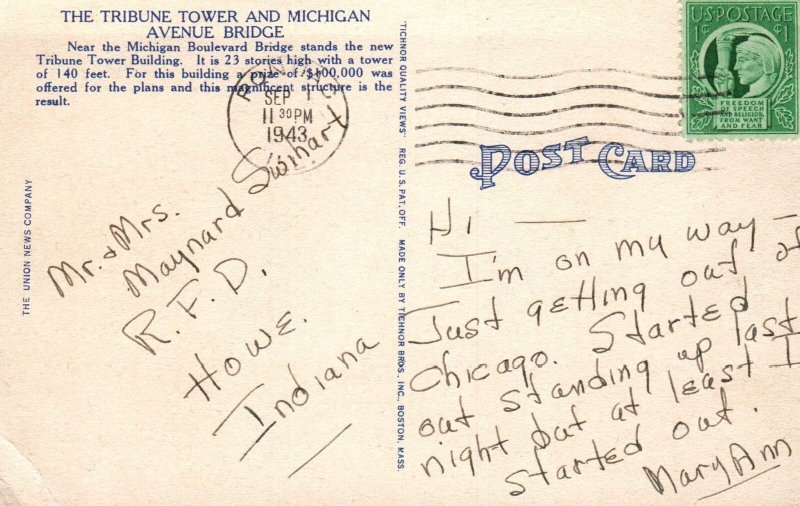 THE TRIBUNE TOWER AND MICHIGAN
AVENUE BRIDGE
Near the Michigan Boulevard Bridge stands the new
Tribune Tower Building. It is 23 stories high with a tower
of 140 feet. For this building a prize of $100,000 was
offered for the plans and this magnificent structure is the
result.
SEP 1
11 30 PM
1943
THE UNION NEWS COMPANY
Mr. & Mrs.
Maynard Swihart
R.F.D.
Howe.
Indiana
"TICHNOR QUALITY VIEWS" REG. U. S. PAT. OFF. MADE ONLY BY TICHNOR BROS. INC., BOSTON, MASS.
U.S. POSTAGE
1¢ ¢1
FREEDOM
OF SPEECH
AND RELIGION,
FROM WANT
AND FEAR
POST CARD
Hi —
I'm on my way –
Just getting out of
Chicago. Started
out standing up last
night but at least I
started out.
Mary Ann